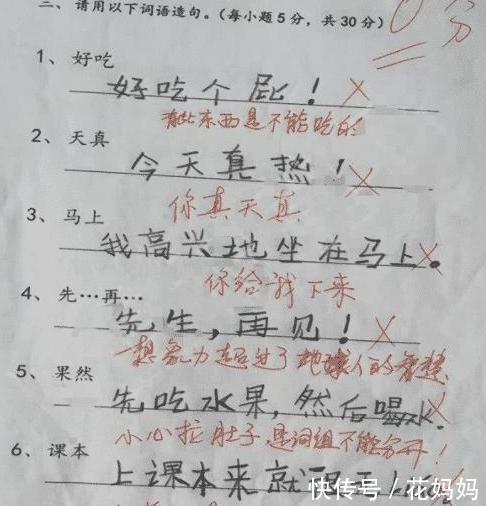 二、请用以下词语造句。(每小题5分，共30分)
0分
1、好吃
好吃个屁！
有些东西是不能吃的
2、天真
今天真热！
你真天真
3、马上
我高兴地坐在马上。
你给我下来
4、先…再…
先生，再见！
想象力超过了地球人的智慧
5、果然
先吃水果，然后喝水。
小心拉肚子 是词组不能分开！
6、课本
上课本来就
快传号／花妈妈